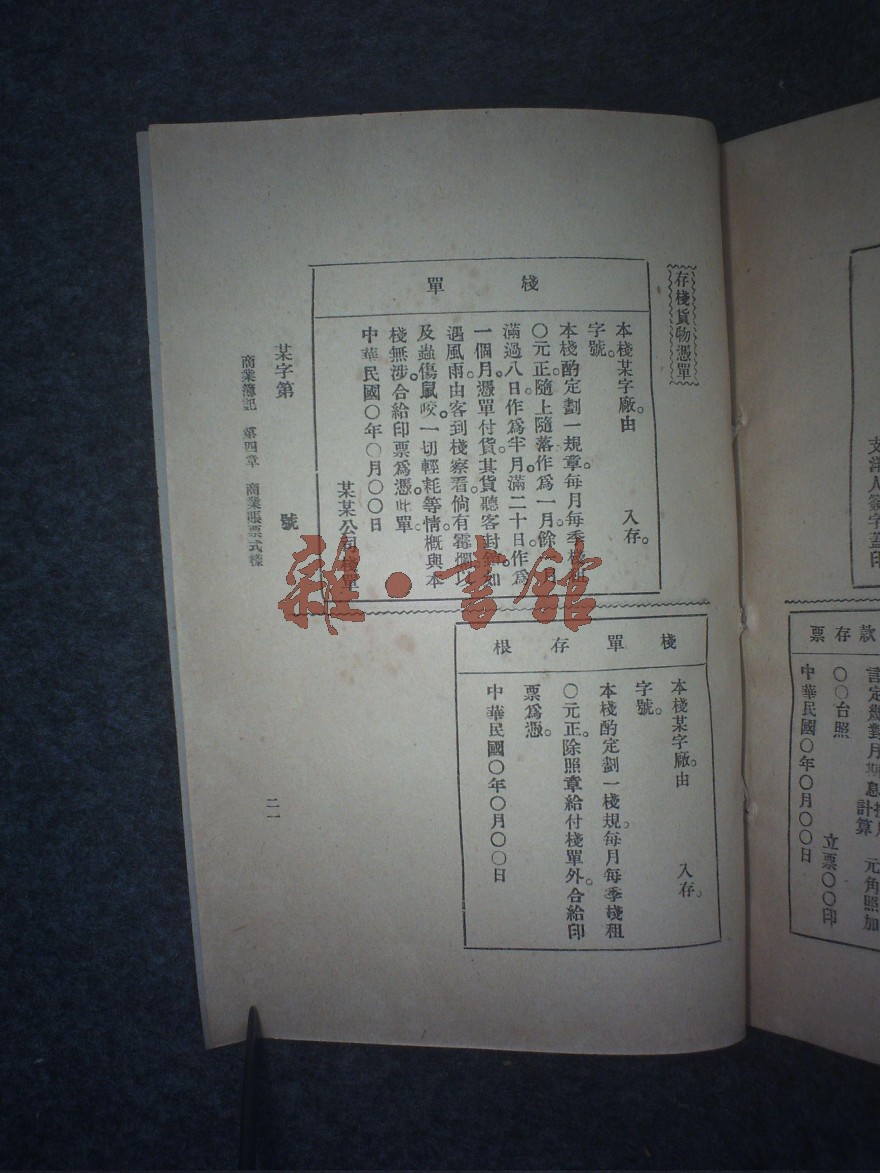 存棧貨物憑單
棧單
本棧某字廠。由 入存。
字號。
本棧酌定劃一規章。每月每季棧租
〇元正。隨上隨落作爲一月。餘一月
滿過八日作爲半月。滿二十日作爲
一個月。憑單付貨。其貨聽客封鎖。如
遇風雨。由客到棧察看。倘有霉爛以
及蟲傷鼠咬。一切輕耗等情。概與本
棧無涉。合給印票爲憑。此單。
中華民國〇年〇月〇〇日
某某公司棧單
某字第 號
棧單存根
本棧某字廠。由 入存。
字號。
本棧酌定劃一棧規。每月每季棧租
〇元正。除照章給付棧單外。合給印
票爲憑。
中華民國〇年〇月〇〇日
商業簿記 第四章 商業賬票式樣
二一
支洋人簽字蓋印
款存票
言定幾對月期息按月 元角照加
計算
〇〇台照
立票〇〇印
中華民國〇年〇月〇〇日
雜·書館